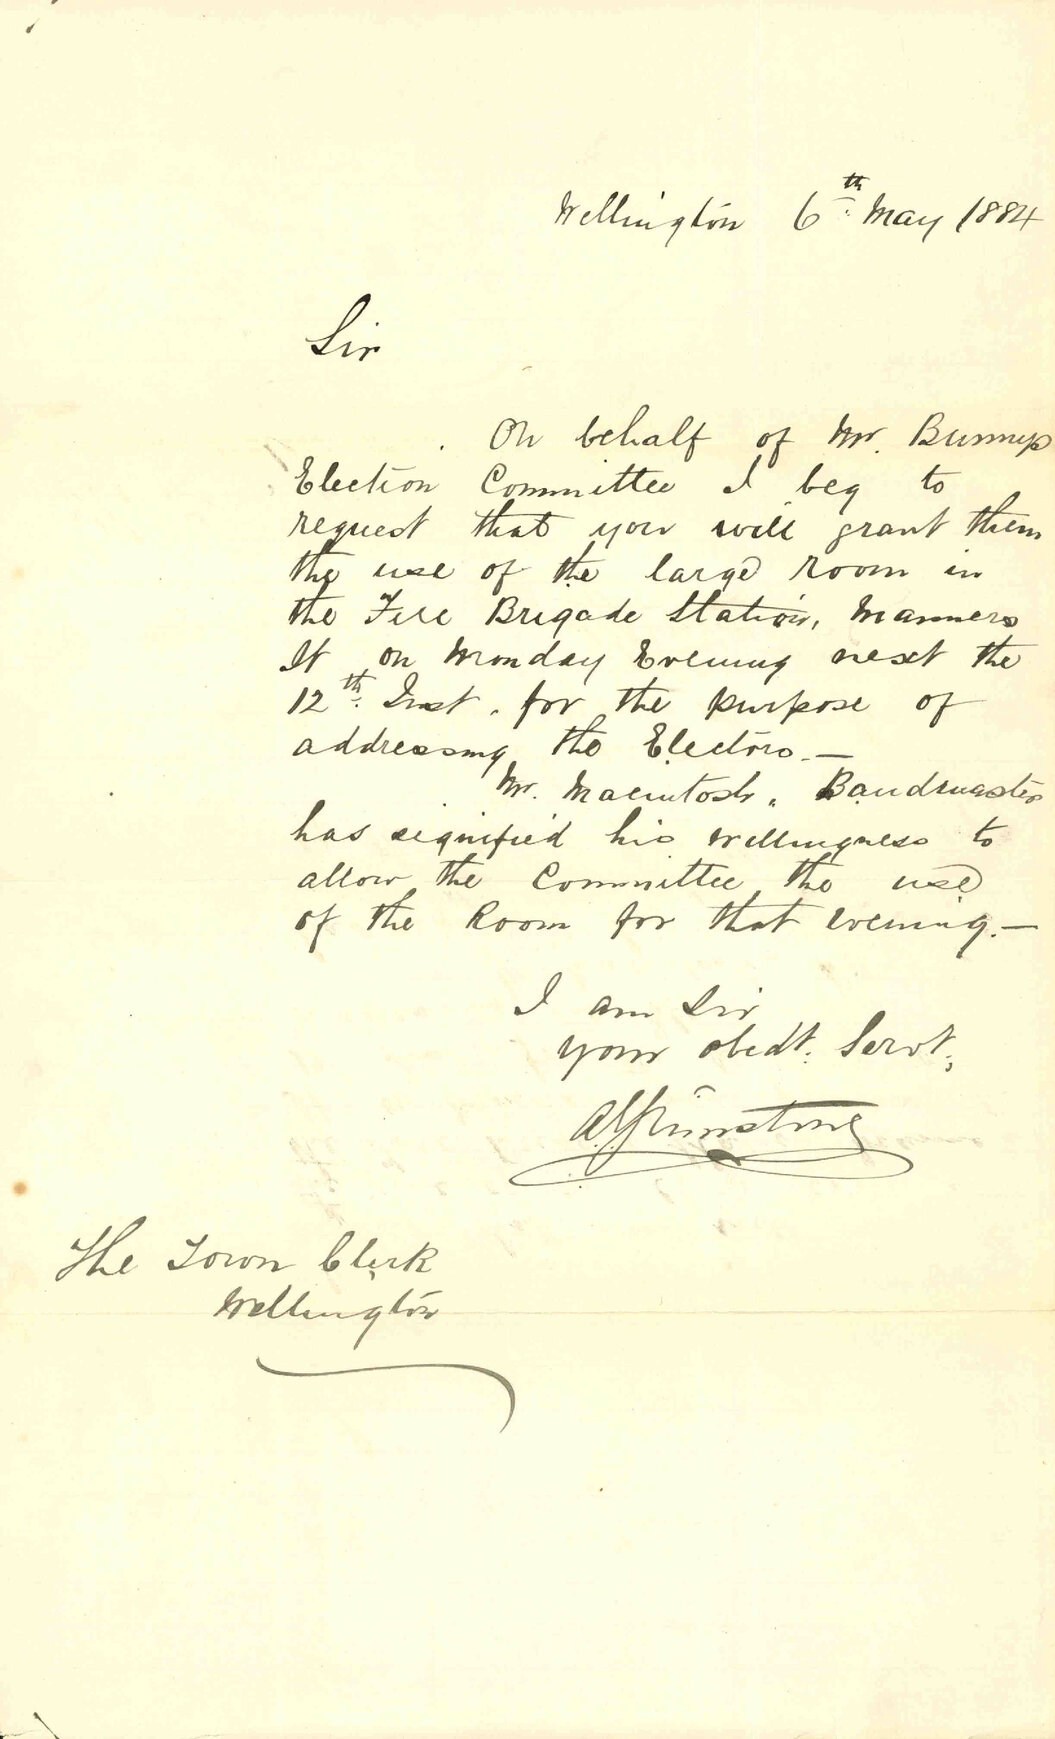 Wellington 6th May 1884
Sir
On behalf of Mr. Bunnys
Election Committee I beg to
request that you will grant them
the use of the large room in
the Fire Brigade Station, Manners
St on Monday Evening next the
12th. Inst. for the purpose of
addressing the Electors.—
Mr. Macintosh, Bandmaster
has signified his willingness to
allow the Committee the use
of the Room for that evening.—
I am Sir
your obedt. Servt,
The Town Clerk
Wellington